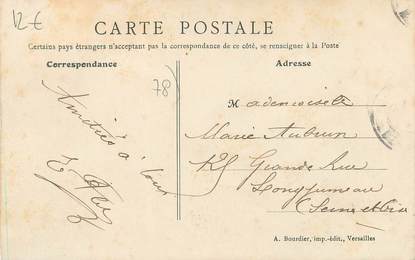 12€
CARTE POSTALE
Certains pays étrangers n'acceptant pas la correspondance de ce côté, se renseigner à la Poste
Correspondance
Adresse
78
Amitiés à tous
Mademoiselle
Marie Aubrun
125 Grande Rue
Longjumeau
(Seine et Oise
A. Bourdier, imp.-édit., Versailles